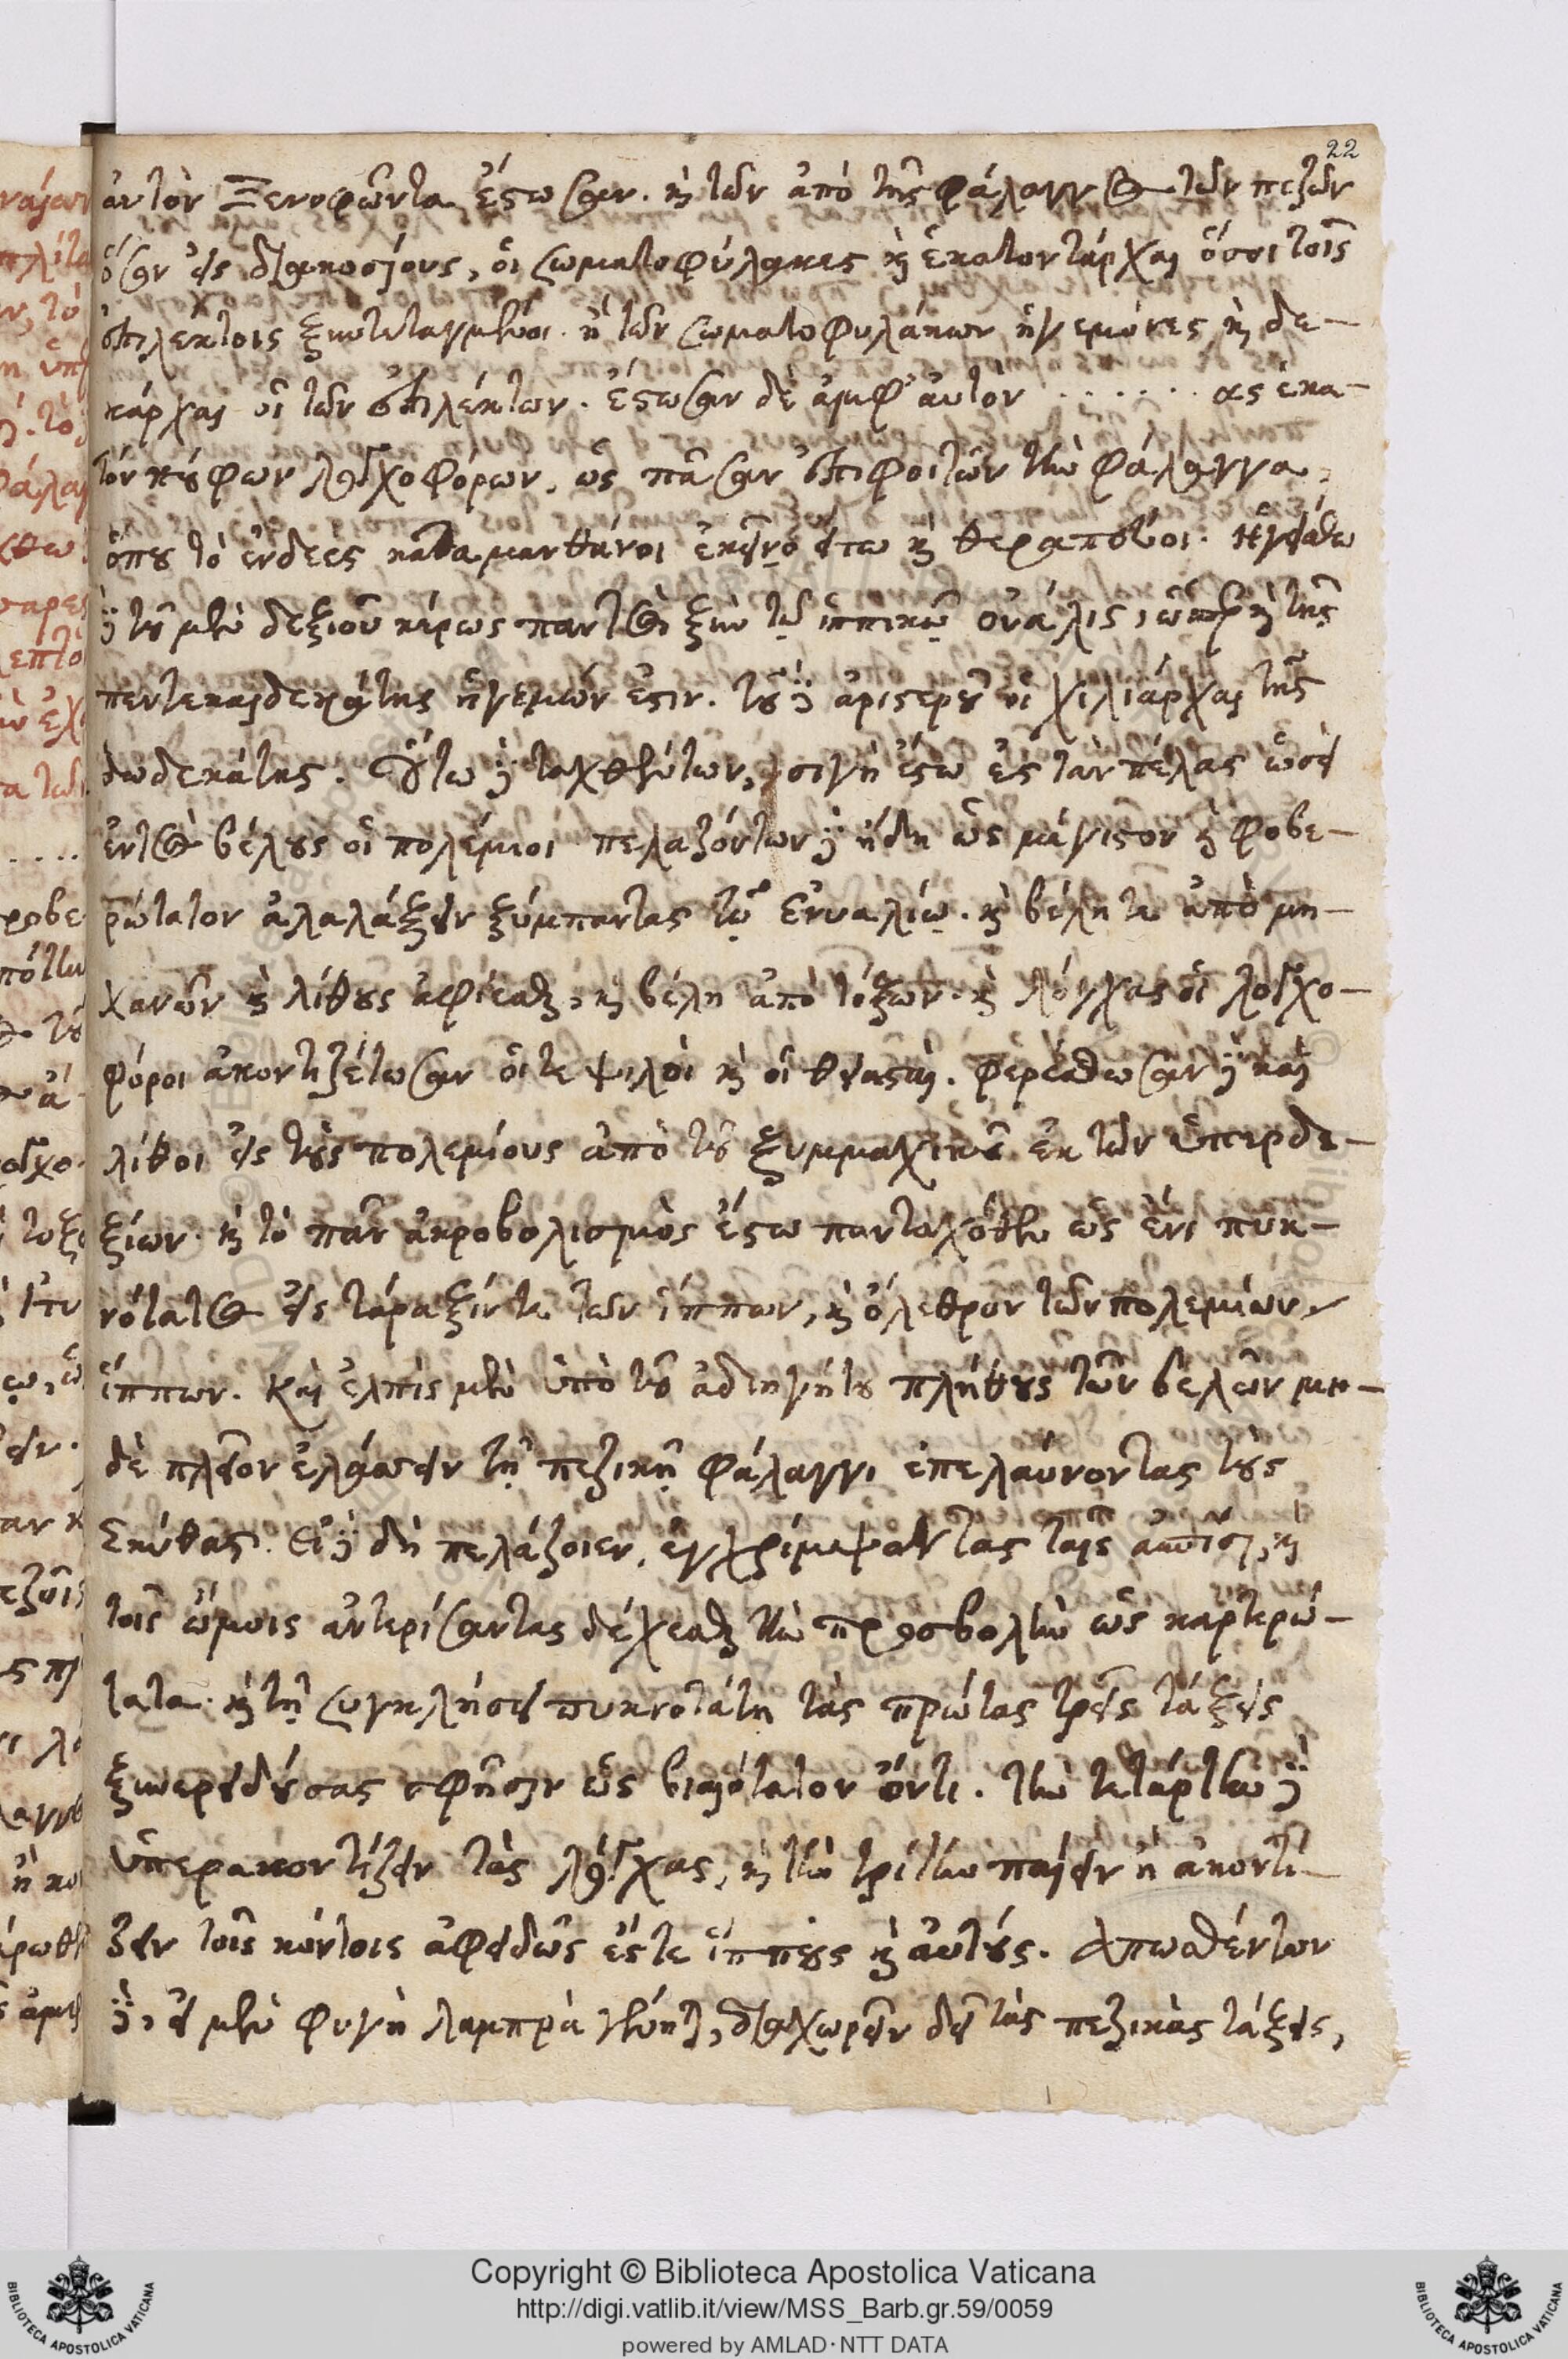 22
ἀυτὸν Ξενοφῶντα ἔστωσαν. καὶ τῶν ἀπὸ τῆς φάλαγγος τῶν πεζῶν
ὅσαν εἰς διακοσίους, οἱ σωματοφύλακες καὶ ἑκατοντάρχαι ὅσοι τοῖς
ἐπιλέκτοις ξυντεταγμένοι. καὶ τῶν σωματοφυλάκων ἡγεμόνες καὶ δε-
κάρχαι οἱ τῶν ἐπιλέκτων. ἔστωσαν δὲ ἀμφ' ἀυτὸν . . . . . . ας ἑκα-
τόν κούφων λογχοφόρων, ὡς πᾶσαν ἐπιφοιτῶν τὴν φάλαγγα,
ὅπου τὸ ἐνδεὲς καταμανθάνοι ἐκεῖνο καὶ θεραπεύοι. Ἡγείσθω
δὲ τοῦ μὲν δεξιοῦ κέρως παντὸς ξὺν τῷ ἱππικῷ οὐάλις, ὥσπερ καὶ τῆς
πεντεκαιδεκάτης ἡγεμών ἐστιν. τοῦ δὲ ἀριστεροῦ οἱ χιλιάρχαι τῆς
δωδεκάτης. Οὕτω δὲ ταχθέντων, σιγὴ ἔστω ἔς τ' ἂν πέλας ὦσι
ἐντὸς βέλους οἱ πολέμιοι πελαζόντων δὲ ἤδη ὡς μάγιστον καὶ φοβε-
ρώτατον ἀλαλάξειν ξύμπαντας τῷ Ενυαλίῳ. καὶ βέλη τε ἀπὸ μη-
χανῶν καὶ λίθους ἀφίεσθαι, καὶ βέλη ἀπὸ τόξων. καὶ λόγχας οἱ λογχο-
φόροι ἀκοντιζέτωσαν οἵ τε ψιλοὶ καὶ οἱ θυρασταὶ. φερέσθωσαν δὲ καὶ
λίθοι εἰς τοὺς πολεμίους ἀπὸ τοῦ ξυμμαχικοῦ ἐκ τῶν ὑπερδε-
ξίων. καὶ τὸ πᾶν ἀκροβολισμὸς ἔστω πανταχόθεν ὡς ἔνι πυκ-
νότατος εἰς τάραξίν τε τῶν ἵππων, καὶ ὄλεθρον τῶν πολεμίων
ἵππων. Καὶ ἐλπὶς μὲν ὑπὸ τοῦ ἀδιηγήτου πλήθους τῶν βελῶν μη-
δὲ πλεῖον ἐλάσειν τῇ πεζικῇ φάλαγγι ἐπελαύνοντας τοὺς
Σκύθας. Εἰ δὲ δὴ πελάζοιεν, ἐγχρίμψαντας ταῖς ἀσπίσι, καὶ
τοῖς ὤμοις ἀντερίσαντας δέχεσθαι τὴν προσβολὴν ὡς καρτερώ-
τατα. καὶ τῇ συγκλήσει πυκνοτάτῃ τὰς πρώτας τρεῖς τάξεις
ξυνερειδούσας σφῆσιν ὡς βιαιότατον ὄντι. τὴν τετάρτην δὲ
ὑπερακοντίζειν τὰς λόγχας, καὶ τὴν τρίτην παίειν ἢ ἀκοντί-
ζειν τοῖς κόντοις ἀφειδῶς ἔς τε ἵππους καὶ ἀυτούς. Απωσθέντων
δὲ, εἰ μὲν φυγὴ λαμπρὰ γένηται, διαχωρεῖν δεῖ τὰς πεζικὰς τάξεις,
Copyright © Biblioteca Apostolica Vaticana
http://digi.vatlib.it/view/MSS_Barb.gr.59/0059
powered by AMLAD·NTT DATA
BIBLIOTECA APOSTOLICA VATICANA
BIBLIOTECA APOSTOLICA VATICANA